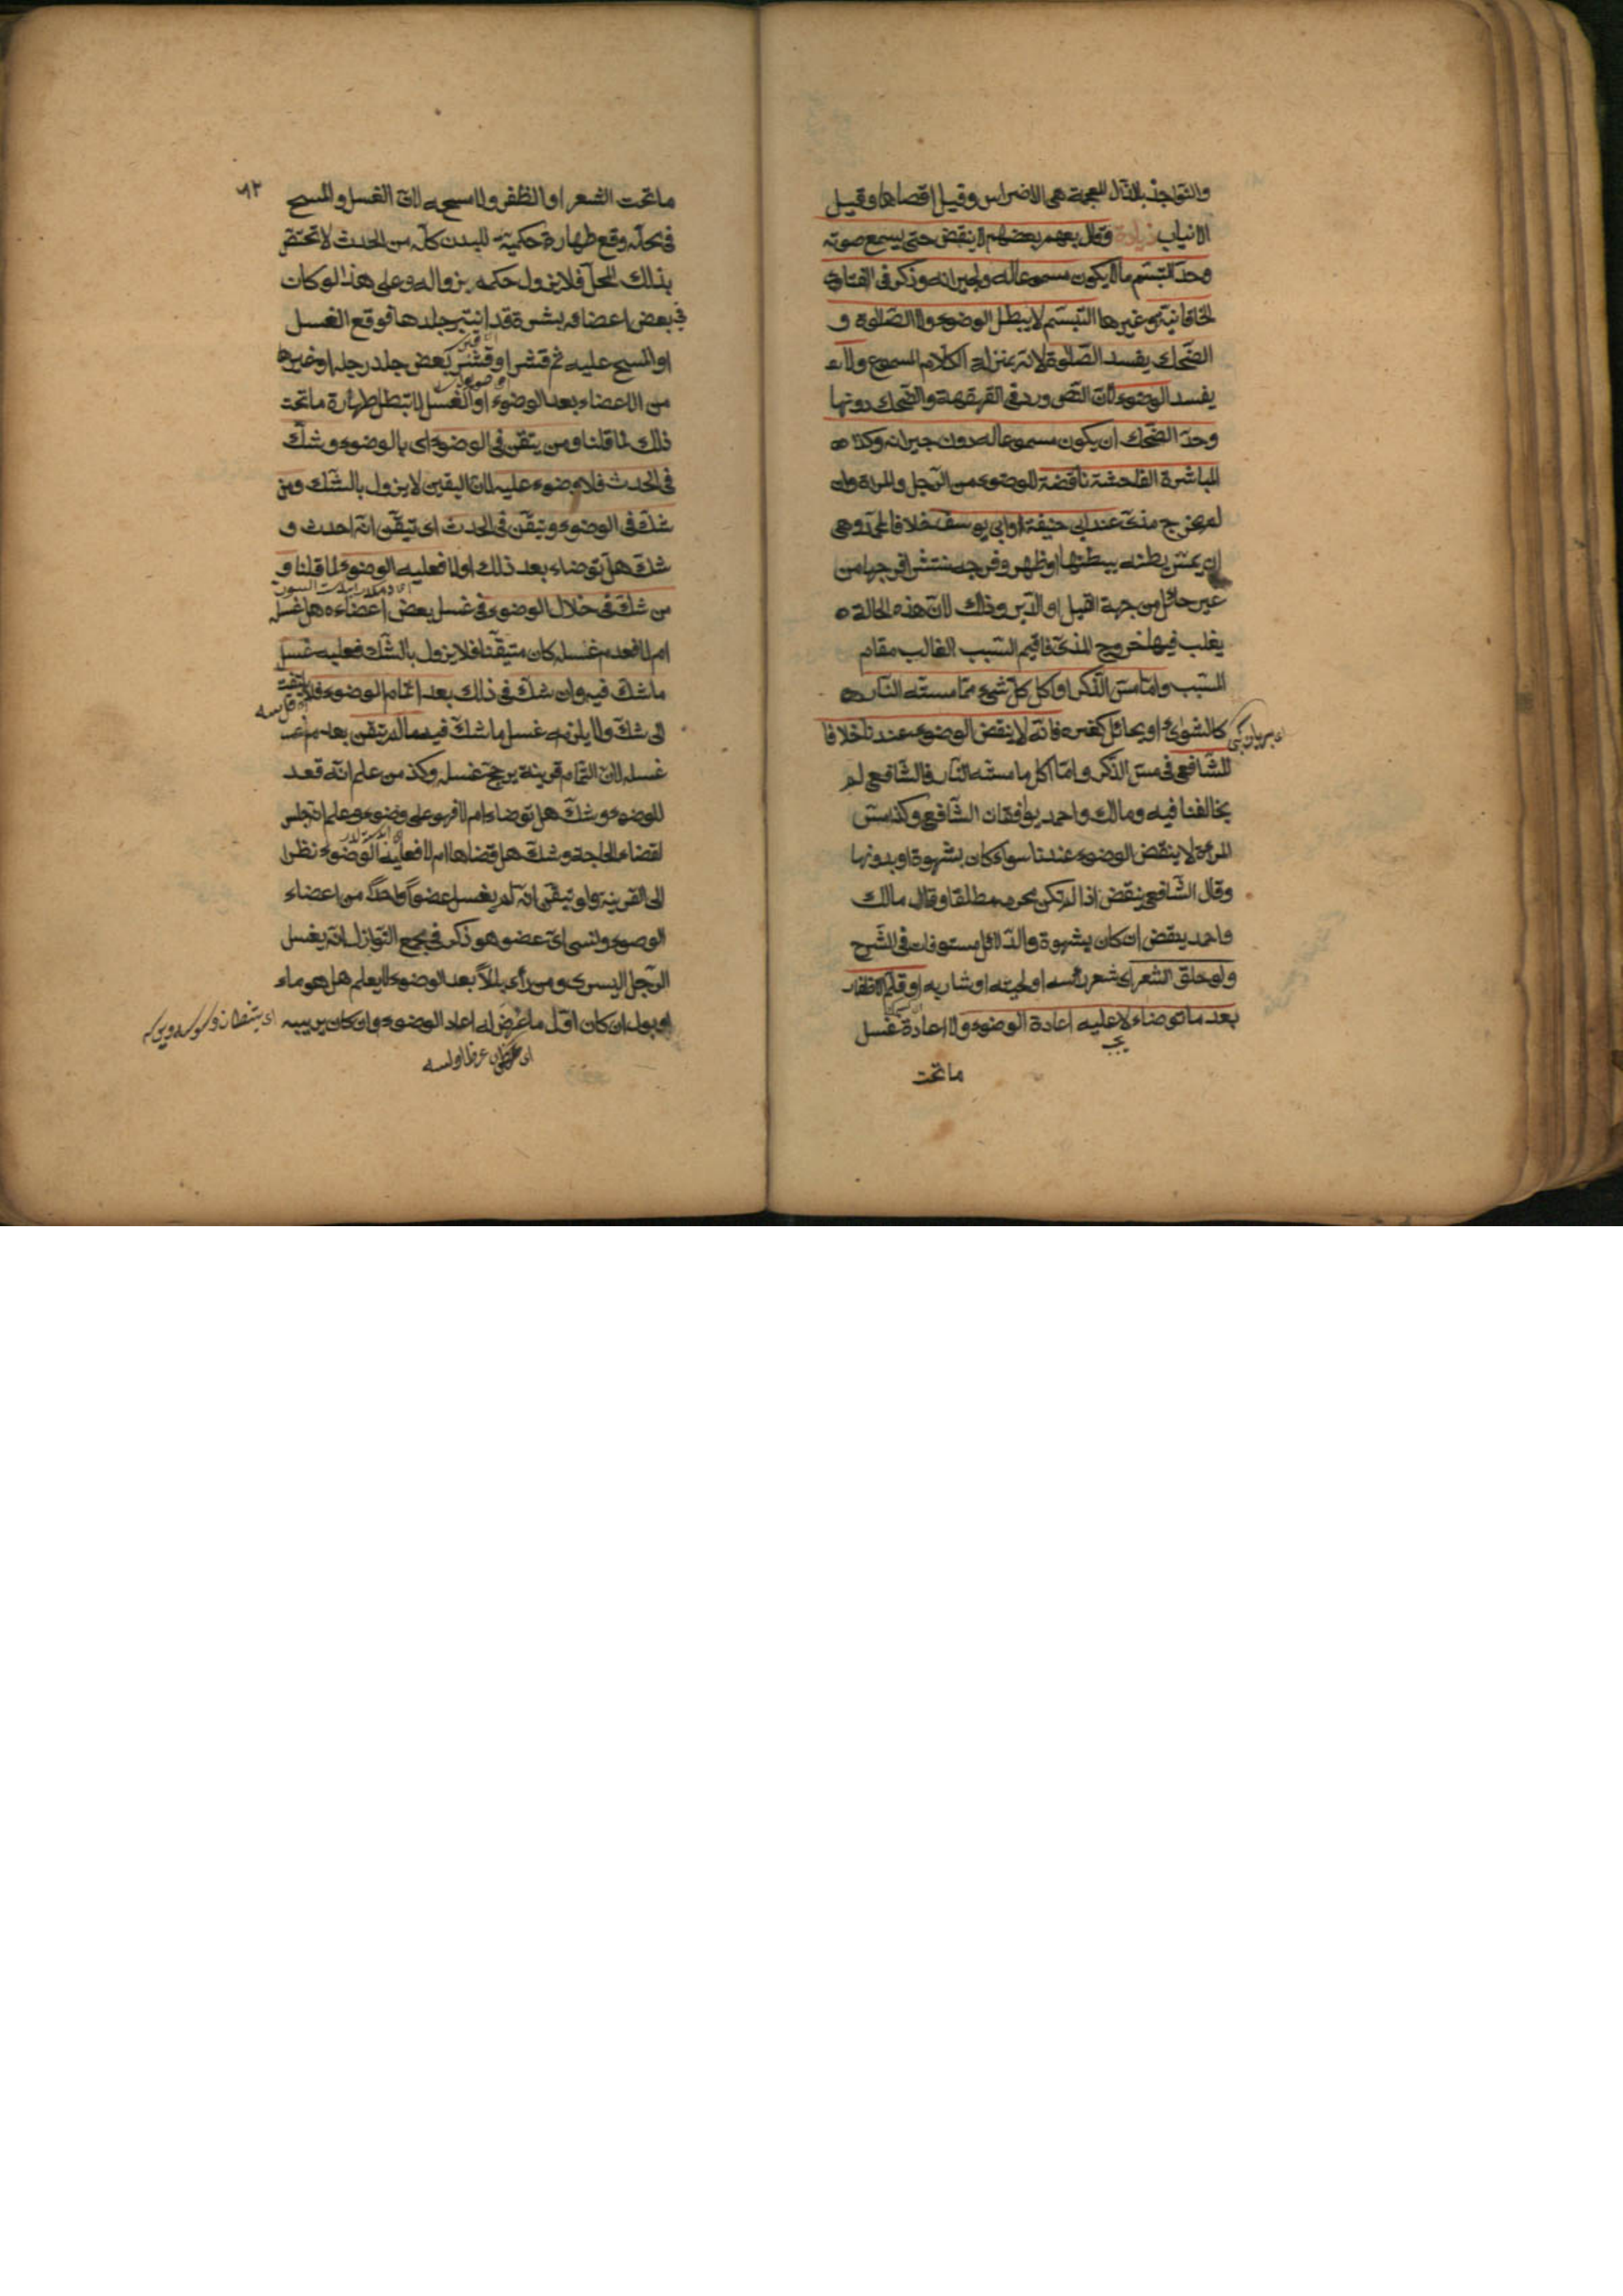 والنواجذ بالذال المعجمة هى الاضراس وقيل اقصاها وقيل
الانياب زيادة وقال بعضهم لا ينقض حتى يسمع صوته
وحد التبسم ما لا يكون مسموعا له ولجيرانه وذكر فى الفتاوى
الخاقانية وغيرها التبسم لا يبطل الوضوء ولا الصلوة و
الضحك يفسد الصلوة لانه بمنزلة الكلام المسموع ولا
يفسد الوضوء لان النص ورد فى القهقهة والضحك دونها
وحد الضحك ان يكون مسموعا له دون جيرانه وكذا
المباشرة الفاحشة ناقضة للوضوء من الرجل والمراة وان
لم يخرج مذى عند ابى حنيفة وابى يوسف خلافا لمحمد وهى
ان يمس بطنه ببطنها او ظهر وفرجه منتشر فرجها من
غير حائل من جهة القبل او الدبر وذلك لان هذه الحالة
يغلب فيها خروج المذى فاقيم السبب الغالب مقام
المسبب واما مس الذكر او اكل كل شىء مما مسته النار
كالشواء او بحائل كغيره فانه لا ينقض الوضوء عندنا خلافا
للشافعى فى مس الذكر واما اكل ما مسته النار فالشافعى لم
يخالفنا فيه ومالك واحمد يوافقان الشافعى وكذا مس
المرءة لا ينقض الوضوء عندنا سواء كان بشهوة او بدونها
وقال الشافعى ينقض اذا لم تكن محرمه مطلقا وقال مالك
واحمد ينقض ان كان بشهوة والدلائل مستوفات فى الشرح
ولو حلق الشعر اى شعر رأسه او لحيته او شاربه او قلم الاظفار
بعد ما توضاء لا عليه اعادة الوضوء ولا اعادة غسل
يجب
ما تحت
٩٢
ما تحت الشعر او الظفر ولا مسحه لان الغسل والمسح
فى محله وقع طهارة حكمية للبدن كله من الحدث لا تختص
بذلك المحل فلا يزول حكمه بزواله وعلى هذا لو كان
فى بعض اعضائه بشرة قد انتبر جلدها فوقع الغسل
او المسح عليه ثم قشر او قشر بعض جلد رجله او غيرها
من الاعضاء بعد الوضوء او الغسل لا تبطل طهارة ما تحت
ذلك لما قلنا ومن يتقن فى الوضوء اى بالوضوء وشك
فى الحدث فلا وضوء عليه لان اليقين لا يزول بالشك ومن
شك فى الوضوء وتيقن فى الحدث اى تيقن انه احدث و
شك هل توضاء بعد ذلك اولا فعليه الوضوء لما قلنا و
من شك فى خلال الوضوء فى غسل بعض اعضاءه هل غسله
ام لا فعدم غسله كان متيقنا فلا يزول بالشك فعليه غسل
ما شك فيه وان شك فى ذلك بعد اتمام الوضوء فلا يلتفت
الى شك ولا يلزمه غسل ما شك فيه ما لم يتقن بعدم
غسله لان التمام قرينة ترجح غسله وكذا من علم انه قعد
للوضوء وشك هل توضاء ام لا فهو على وضوء وعلم انه جلس
لقضاء الحاجة وشك هل قضاها ام لا فعليه الوضوء نظرا
الى القرينة ولو تيقن انه لم يغسل عضوا واحدا من اعضاء
الوضوء ونسى اى عضو هو ذكر فى مجمع النوازل انه يغسل
الرجل اليسرى ومن رأى بللا بعد الوضوء لا يعلم هل هو ماء
او بول ان كان اول ما عرض له اعاد الوضوء وان كان يريبه